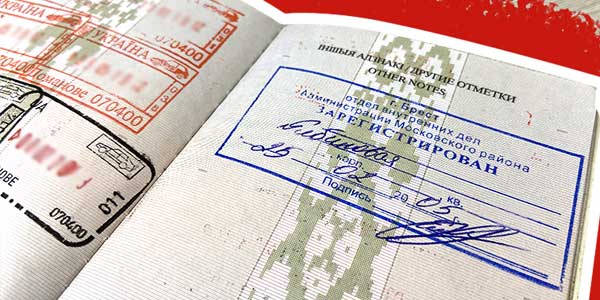 УКРАЇНА
070400
УКРАЇНА
Томанове 070400
ОВЕ
011
070400
ІНШЫЯ АДЗНАКІ / ДРУГИЕ ОТМЕТКИ
OTHER NOTES
г. Брест
отдел внутренних дел
Администрации Московского района
ЗАРЕГИСТРИРОВАН
корп. кв.
25 02 2005 г.
Подпись